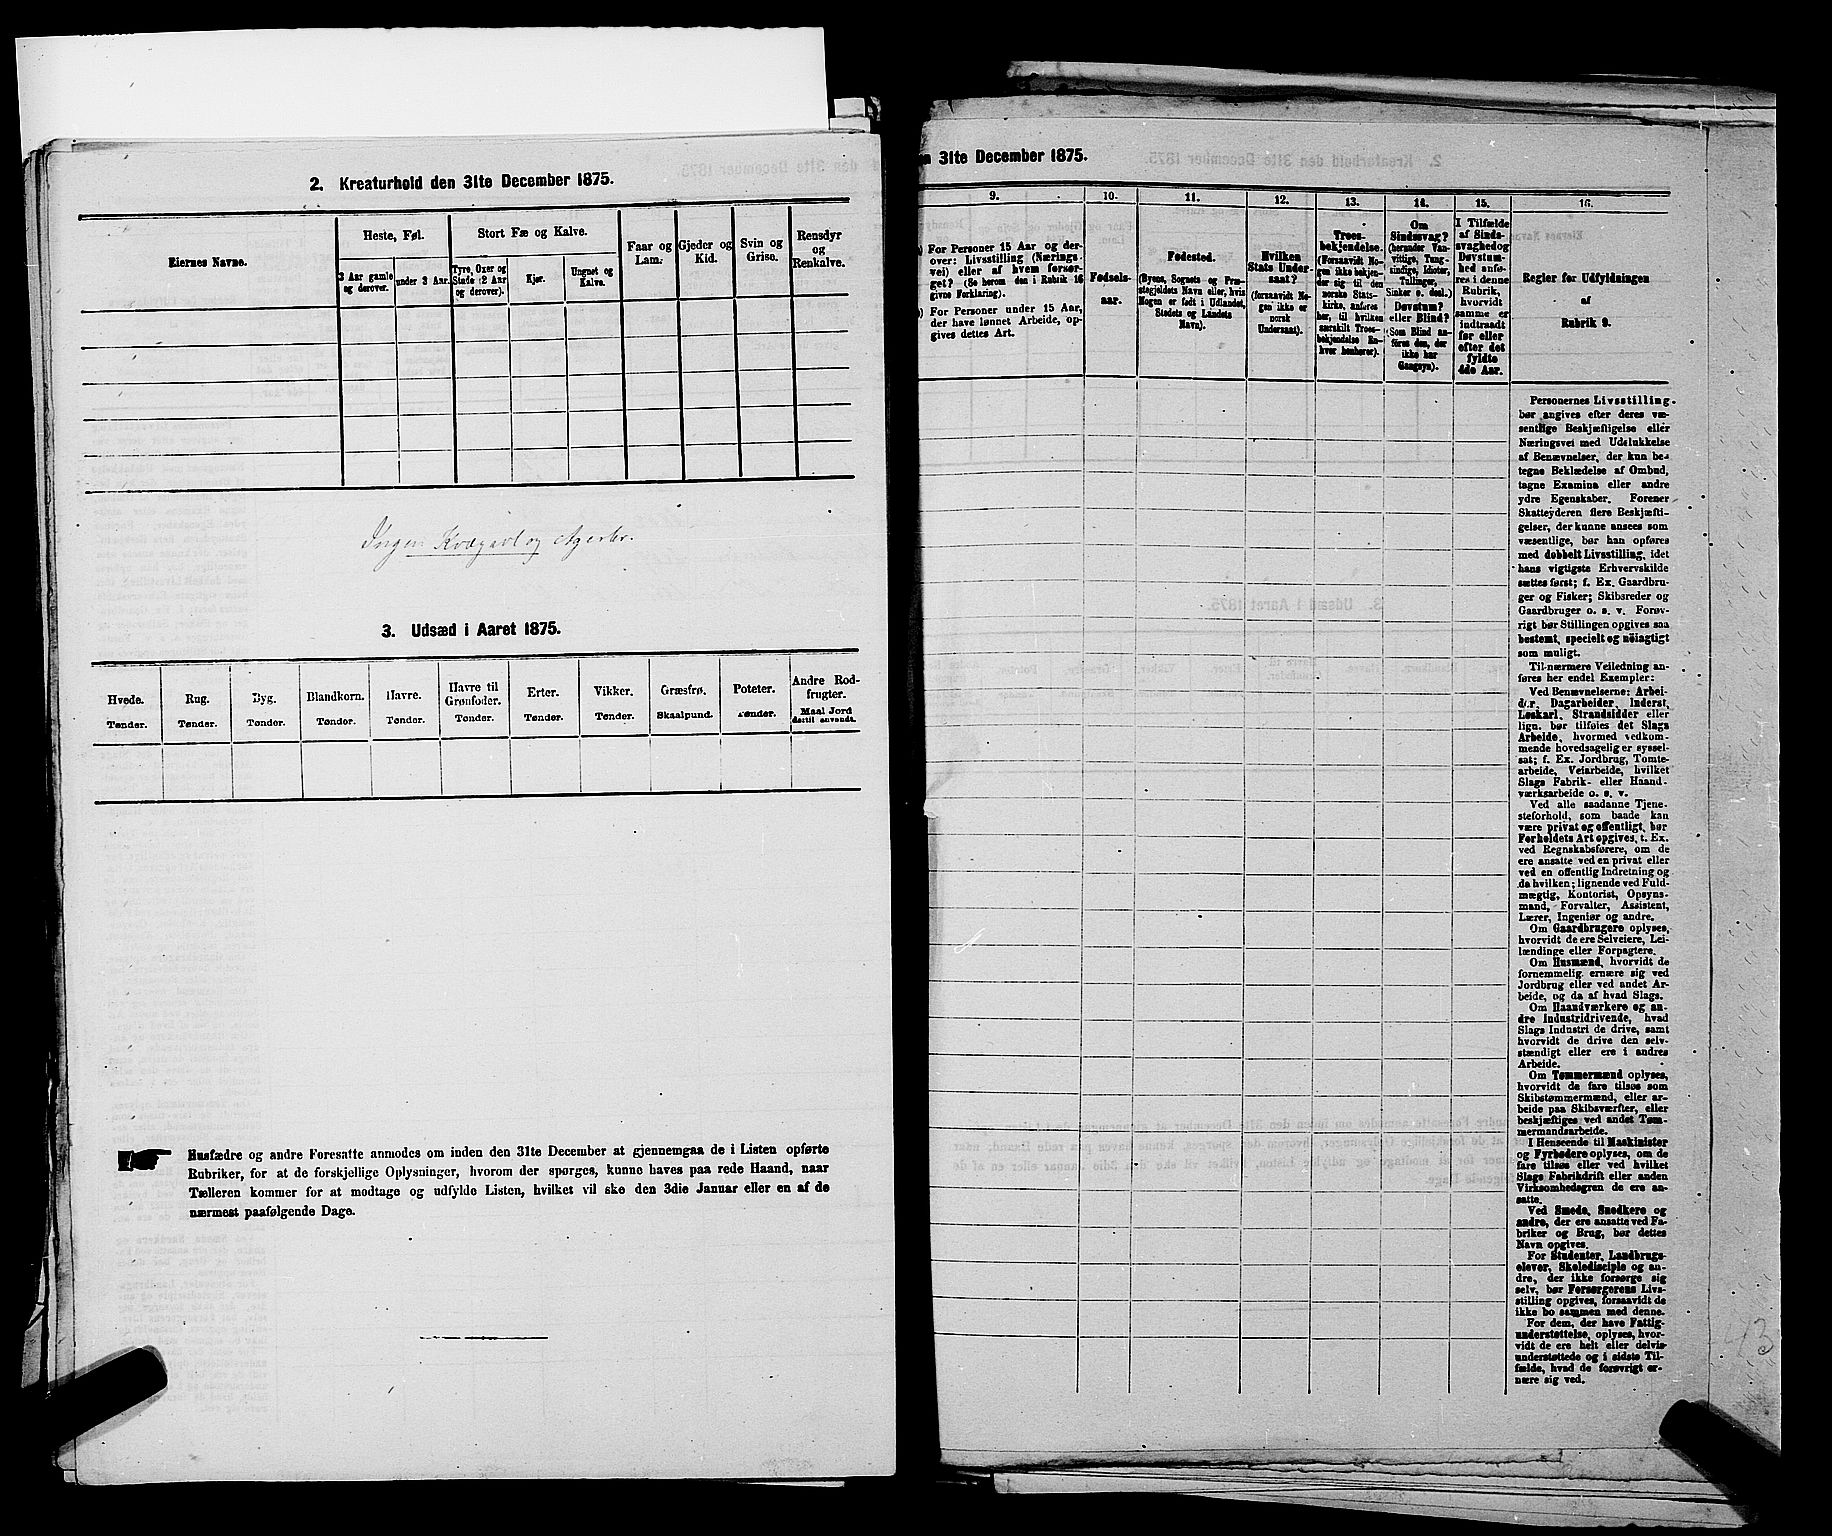 2. Kreaturhold den 31te December 1875.
Eiernes Navne.
Heste, Føl.
3 Aar gamle
og derover.
under 3 Aar.
Stort Fæ og Kalve.
Tyre, Oxer og
Stude (2 Aar
og derover).
Kjør.
Ungnet og
Kalve.
Faar og
Lam.
Gjeder og
Kid.
Svin og
Grise.
Rensdyr
og
Renkalve.
Ingen Kvægavl og Agerbr.
3. Udsæd i Aaret 1875.
Hvede.
Tønder.
Rug.
Tønder.
Byg.
Tønder.
Blandkorn.
Tønder.
Havre.
Tønder.
Havre til
Grønfoder.
Tønder.
Erter.
Tønder.
Vikker.
Tønder.
Græsfrø.
Skaalpund.
Poteter.
Tønder.
Andre Rod-
frugter.
Maal Jord
dertil anvendt.
Husfædre og andre Foresatte anmodes om inden den 31te December at gjennemgaa de i Listen opførte
Rubriker, for at de forskjellige Oplysninger, hvorom der spørges, kunne haves paa rede Haand, naar
Tælleren kommer for at modtage og udfylde Listen, hvilket vil ske den 3die Januar eller en af de
nærmest paafølgende Dage.
31te December 1875.
9.
For Personer 15 Aar og der-
over: Livsstilling (Nærings-
vei) eller af hvem forsør-
get? (Se herom den i Rubrik 16
givne Forklaring).
For Personer under 15 Aar,
der have lønnet Arbeide, op-
gives dettes Art.
10.
Fødsels-
aar.
11.
Fødested.
(Byens, Sognets og Præ-
stegjeldets Navn eller, hvis
Nogen er født i Udlandet,
Stedets og Landets
Navn).
12.
Hvilken
Stats Under-
saat?
(forsaavidt No-
gen ikke er
norsk
Undersaat).
13.
Troes-
bekjendelse.
(Forsaavidt No-
gen ikke bekjen-
der sig til den
norske Stats-
kirke, anføres
her, til hvilken
særskilt Troes-
bekjendelse En-
hver henhører).
14.
Om
Sindssvag?
(herunder Van-
vittige, Tung-
sindige, Idioter,
Tullinger,
Sinker o. desl.)
Døvstum?
eller Blind?
(Som Blind an-
føres den, der
ikke har
Gangsyn).
15.
I Tilfælde
af Sinds-
svaghed og
Døvstum-
hed anfø-
res i denne
Rubrik,
hvorvidt
samme er
indtraadt
før eller
efter det
fyldte
4de Aar.
16.
Regler for Udfyldningen
af
Rubrik 9.
Personernes Livsstilling
bør angives efter deres væ-
sentlige Beskjæftigelse eller
Næringsvei med Udelukkelse
af Benævnelser, der kun be-
tegne Beklædelse af Ombud,
tagne Examina eller andre
ydre Egenskaber. Forener
Skatteyderen flere Beskjæfti-
gelser, der kunne ansees som
væsentlige, bør han opføres
med dobbelt Livsstilling, idet
hans vigtigste Erhvervskilde
sættes først; f. Ex. Gaardbru-
ger og Fisker; Skibsreder og
Gaardbruger o. s. v. Forøv-
rigt bør Stillingen opgives saa
bestemt, specielt og nöiagtigt
som muligt.
Til nærmere Veiledning an-
føres her endel Exempler:
Ved Benævnelserne: Arbei-
der, Dagarbeider, Inderst,
Løskarl, Strandsidder eller
lign. bør tilføies det Slags
Arbeide, hvormed vedkom-
mende hovedsagelig er syssel-
sat; f. Ex. Jordbrug, Tomte-
arbeide, Veiarbeide, hvilket
Slags Fabrik- eller Haand-
værksarbeide o. s. v.
Ved alle saadanne Tjene-
steforhold, som baade kan
være privat og offentligt, bør
Forholdets Art opgives, t. Ex.
ved Regnskabsførere, om de
ere ansatte ved en privat eller
ved en offentlig Indretning og
da hvilken; lignende ved Fuld-
mægtig, Kontorist, Opsyns-
mand, Forvalter, Assistent,
Lærer, Ingeniør og andre.
Om Gaardbrugere oplyses,
hvorvidt de ere Selveiere, Lei-
lændinge eller Forpagtere.
Om Husmænd, hvorvidt de
fornemmelig ernære sig ved
Jordbrug eller ved andet Ar-
beide, og da af hvad Slags.
Om Haandværkere og an-
dre Industridrivende, hvad
Slags Industri de drive, samt
hvorvidt de drive den selv-
stændigt eller ere i andres
Arbeide.
Om Tømmermænd oplyses,
hvorvidt de fare tilsøs som
Skibstømmermænd, eller ar-
beide paa Skibsværfter, eller
beskjæftiges ved andet Tøm-
mermandsarbeide.
I Henseende til Maskinister
og Fyrbødere oplyses, om de
fare tilsøs eller ved hvilket
Slags Fabrikdrift eller anden
Virksomhedsgren de ere an-
satte.
Ved Smede, Snedkere og
andre, der ere ansatte ved Fa-
briker og Brug, bør dettes
Navn opgives.
For Studenter, Landbrugs-
elever, Skoledisciple og an-
dre, der ikke forsørge sig
selv, bør Forsørgerens Livs-
stilling opgives, forsaavidt de
ikke bo sammen med denne.
For dem, der have Fattig-
understøttelse, oplyses, hvor-
vidt de ere helt eller delvis
understøttede og i sidste Til-
fælde, hvad de forøvrigt er-
nære sig ved.
43